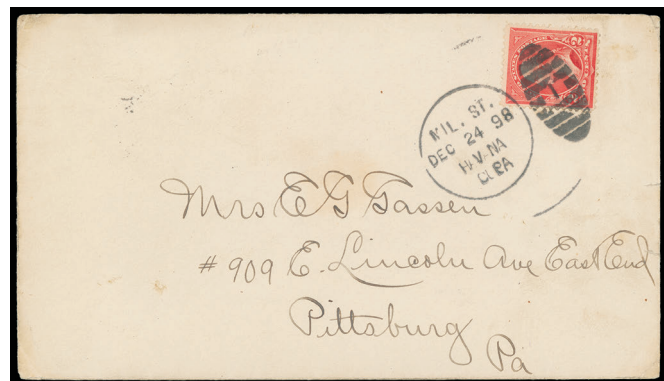 MIL. ST.
DEC 24 98
HAVANA
CUBA
1
Mrs E G Gassen
# 909 E. Lincoln Ave East End
Pittsburg
Pa